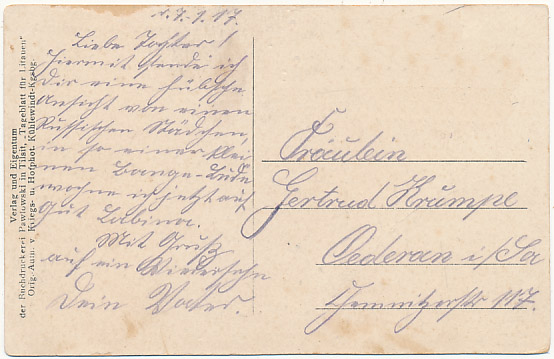 d. 7.1.17.
Liebe Tochter!
Hiermit sende ich
Dir eine hübsche
Ansicht von einen
Russischen Städchen,
in so einer klei
nen Bange-Bude
wohne ich jetzt auf
Gut Labina.
Mit Gruß
auf ein Wiedersehn
Dein Vater.
Fräulein
Gertrud Krumpe
Oederan i/Sa
Chemnitzerstr 117.
Verlag und Eigentum
der Buchdruckerei Pawlowski in Tilsit, „Tageblatt für Litauen“
Orig.-Aufn. v. Kriegs- u. Hofphot. Kühlewindt-Kgsbg.